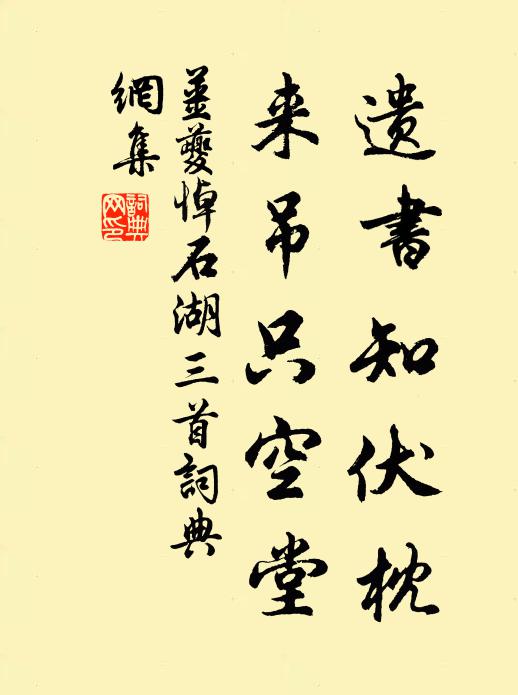 遗書知伏枕
来吊只空堂
姜夔悼石湖三首詞典
網集
詞典网印